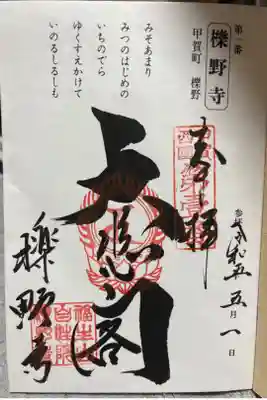 第一番
櫟野寺
甲賀町　櫟野
みそあまり
みつのはじめの
いちのでら
ゆくすえかけて
いのるしるしも
奉拝
令和五 五月一日
大悲閣
櫟野寺
福生山
自性院